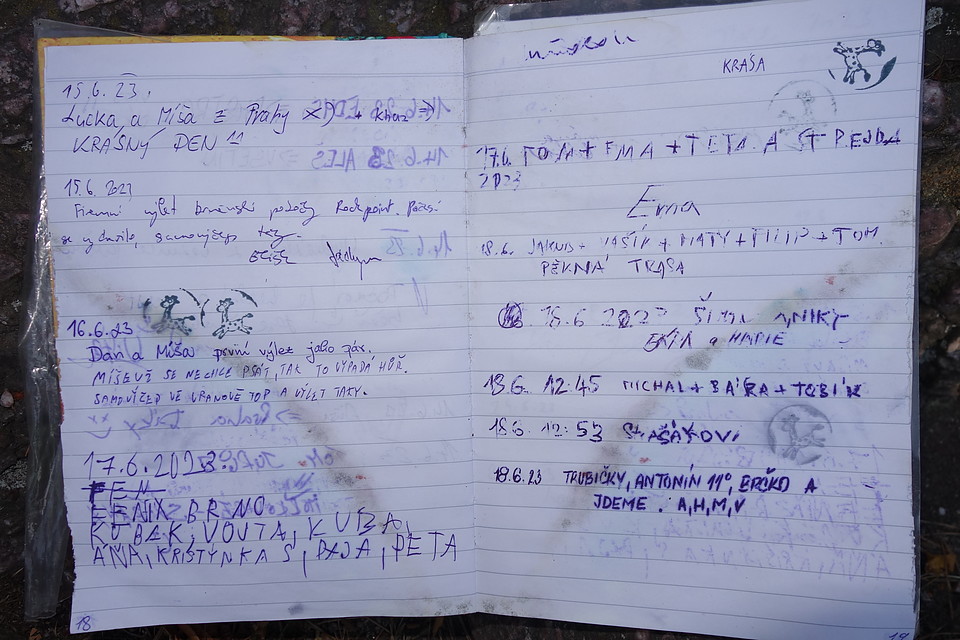 15.6.23.
Lucka a Míša z Prahy XD
KRÁSNÝ DEN !!
15.6.2023
Firemní výlet brněnské pobočky Rockpoint. Počasí
se vydařilo, samovýčep taky.
16.6.23
Dan a Míša první výlet jako pár.
MÍŠEVĚ SE NECHCE PSÁT, TAK TO VYPADÁ HŮŘ.
SAMOVÝČEP VE VRANOVĚ TOP A VÝLET TAKY.
17.6.2023:
FEN
FENIX BRNO
KUBAK, VOJTA, KUBA,
ANA, KRISTÝNKA S, PAJA, PETA
18
KRÁSA
17.6. TOM + EMA + TETA A ST PEJDA
2023
Ema
18.6. JAKUB + VAŠÍK + MATY + FILIP + TOM.
PĚKNÁ TRASA
18.6 2023
18.6. 12:45 MICHAL + BÁRA + TOBIK
18.6 12:53 STAŠÁKOVI
18.6.23 TRUBIČKY, ANTONÍN 11°, BRČKO A
JDEME : A,H,M,V
19